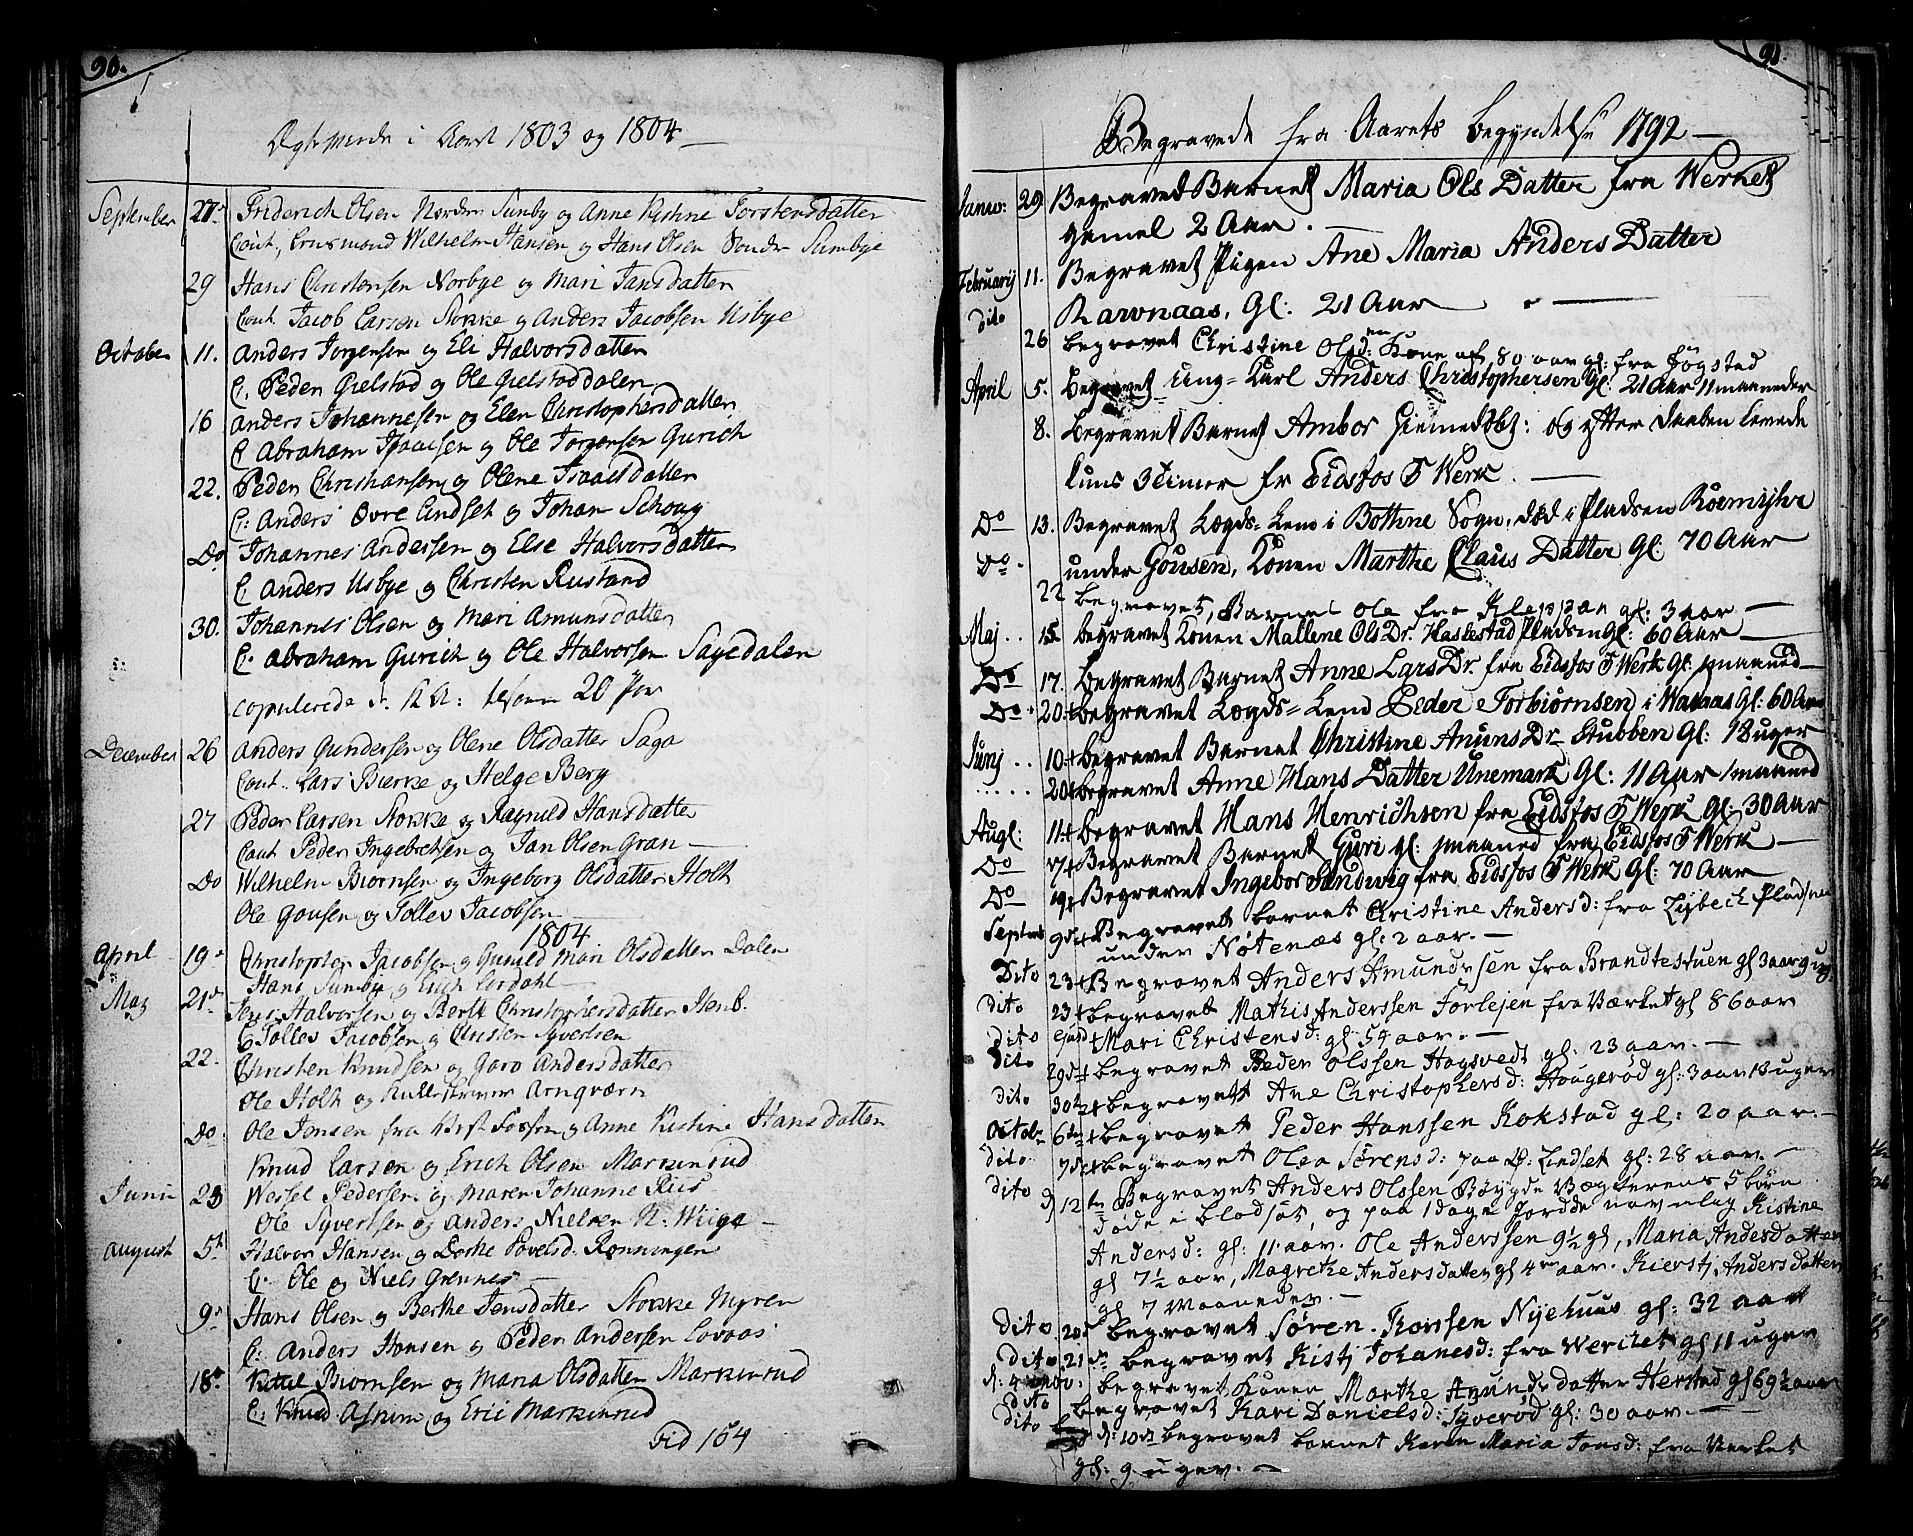 90.
Ægteviede i Aaret 1803 og 1804
September 27. Friderich Olsen Nordre Sunby og Anne Kistine Torstensdatter
Wilhelm Hansen og Hans Olsen Søndre Sunbye
29 Hans Christensen Norbye og Mari Jansdatter
Caut. Jacob Larsen Stokke og Anders Jacobsen Usbye
October 11. Anders Jorgensen og Eli Halvorsdatter
C. Peder Gielstad og Ole Gielstaddalen
16 Anders Johannesen og Elen Christophersdatter
C Abraham Isaacsen og Ole Jorgensen Gurich
22. Peder Christiansen og Olene Isaacsdatter
C: Anders Øvre Lindset og Johan Schoug
Do Johannes Andersen og Else Halvorsdatter
C. Anders Usbye og Christen Rustand
30. Johannes Olsen og Mari Amunsdatter
C. Abraham Gurich og Ole Halvorsen Sagedalen
copulerede 20 Par
December 26 Anders Gundersen og Olene Olsdatter Saga
Caut. Lars Bierke og Helge Berg
27 Peder Larsen Stokke og Ragnild Hansdatter
Caut Peder Ingebretsen og Jan Olsen Gran
Do Wilhelm Biørnsen og Ingeborg Olsdatter Holt
Ole Gousen og Tolles Jacobsen
1804
April 19. Christopher Jacobsen og Gunild Mari Olsdatter Dalen
Hans Sunby og Erich
May 21. Jens Halvorsen og Berte Christophersdatter
C Tolles Jacobsen og Christen Syvertsen
22. Christen Knudsen og Goro Andersdatter
Ole Holt og Arnqværn
Do Ole Jonsen fra og Anne Kistine Hansdatter
Knud Larsen og Erich Olsen Markerud
Junii 23 Wessel Pedersen og Maren Johanne Riis
Ole Syvertsen og Anders Nielsen N: Wiige
August 5. Halvor Hansen og Dorte Povelsd. Rønningen
C. Ole og Niels Grennes
9. Hans Olsen og Berthe Jensdatter Stokke Myren
C: Anders Hansen og Peder Andersen Lovaas
18. Kittil Biornsen og Maria Olsdatter Markerud
C: Knud Askim og Eric Markerud
vid 164
91.
Begravede fra Aarets Begyndelse 1792
Janu: 29 Begravet Barnet Maria Ols Datter fra Werket
gamel 2 Aar.
February 11. Begravet Pigen Ane Maria Anders Datter
Ravnaas, Gl: 21 Aar
dito 26 begravet Christine Olsd: Kone af 80 aar gl: fra Føgstad
April 5. Begravet Ung=Karl Anders Christophersen Gl: 21 Aar 11 maaneder
8. Begravet Barnet Ambor Hiemedøbt: og efter Daaben levede
kuns 3 Timer fr Eidsfos J Werk.
Do 13. Begravet Lægds=Lem i Bottne Sogn, død i Pladsen Roemyhr
Do. under Gousen, Konen Marthe Claus Datter Gl: 70 Aar
22 begravet, Barnet Ole fra Kleppan gl: 3 aar
Maj .. 15. begravet Konen Mallene Ols Dr. Haslestad Pladsen Gl: 60 Aar
Do 17. Begravet Barnet Anne Lars Dr. fra Eidsfos J Werk Gl: 1 maaned
Do. 20 begravet Lægds=Lem Peder Torbiørnsen i Waraas Gl: 60 Aar
Junj .. 10 begravet Barnet Christine Anuns Dr. Stubben Gl: 12 uger
...... 20 begravet Anne Hans Datter Unemark Gl: 11 Aar 1 maaned
Augl: 11 begravet Hans Henrichsen fra Eidsfos J Werk Gl: 30 Aar
Do 17 Begravet Barnet Guri gl: 1 maaned fra Eidsfos J Werk
Do 19 Begravet Ingebor Sandwig fra Eidsfos J Werk Gl: 70 Aar
Septemb 9de Begravet barnet Christine Andersd: fra Lybeck Pladsen
under Nøtenæs gl: 2 aar.
Dito 23 Begravet Anders Amundssen fra Brandtestuen gl 3 aar 9 ug:
dito 23 begravet Mathis Anderssen Torlejen fra Værket gl 86 aar
dito Mari Christensd: gl: 54 aar.
Dito 29d begravet Peder Olssen Hagsvedt gl: 23 aar.
dito 30te begravet Ane Christophersd: Hougerød gl: 3 aar 13 uger
Octobr 6te begravet Peder Hanssen Kokstad gl: 20 aar.
dito 7de begravet Olea Sørensd: paa Ø: Lindset gl: 28 aar
dito d 12te Begravet Anders Olssen Bøygde Vægterens 5 børn
døde i Blodsot, og paa 1 dag jordde navnlig Kistine
Andersd: gl: 11 aar. Ole Anderssen 9½ gl, Maria Andersdatter
gl 7½ aar, Magrethe Andersdatter gl 4 aar. Kierstj Andersdatter
gl 7 Maaneder.
dito 20de begravet Søren Hanssen Nyehuus gl: 32 aar
dito 21de begravet Kistj Johanesd: fra Werchet gl 11 uger
d: 4 Nov: begravet Konen Marthe Anunds datter Herstad gl 69½ aar
dito begravet Kari Danielsd: Syverød gl: 30 aar.
dito d: 10de begravet barnet Karen Maria Jonsd: fra Verket
gl: 9 uger.